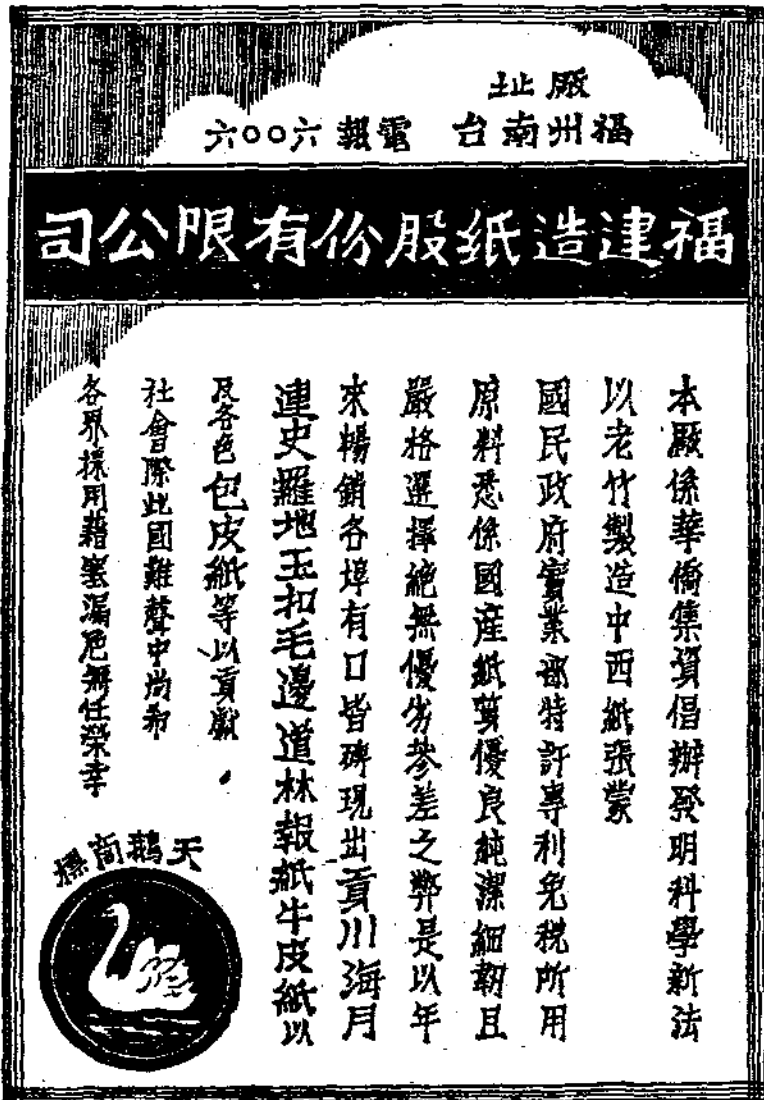 廠址
福州南台 電報六〇〇六
福建造紙股份有限公司
本廠係華僑集資倡辦發明科學新法
以老竹製造中西紙張蒙
國民政府實業部特許專利免稅所用
原料悉係國産紙質優良純潔細韌且
嚴格選擇絕無優劣參差之弊是以年
來暢銷各埠有口皆碑現出貢川海月
連史羅地玉扣毛邊道林報紙牛皮紙以
及各色包皮紙等以貢獻
社會際此國難聲中尚希
各界採用藉塞漏卮無任榮幸
天鵝商標